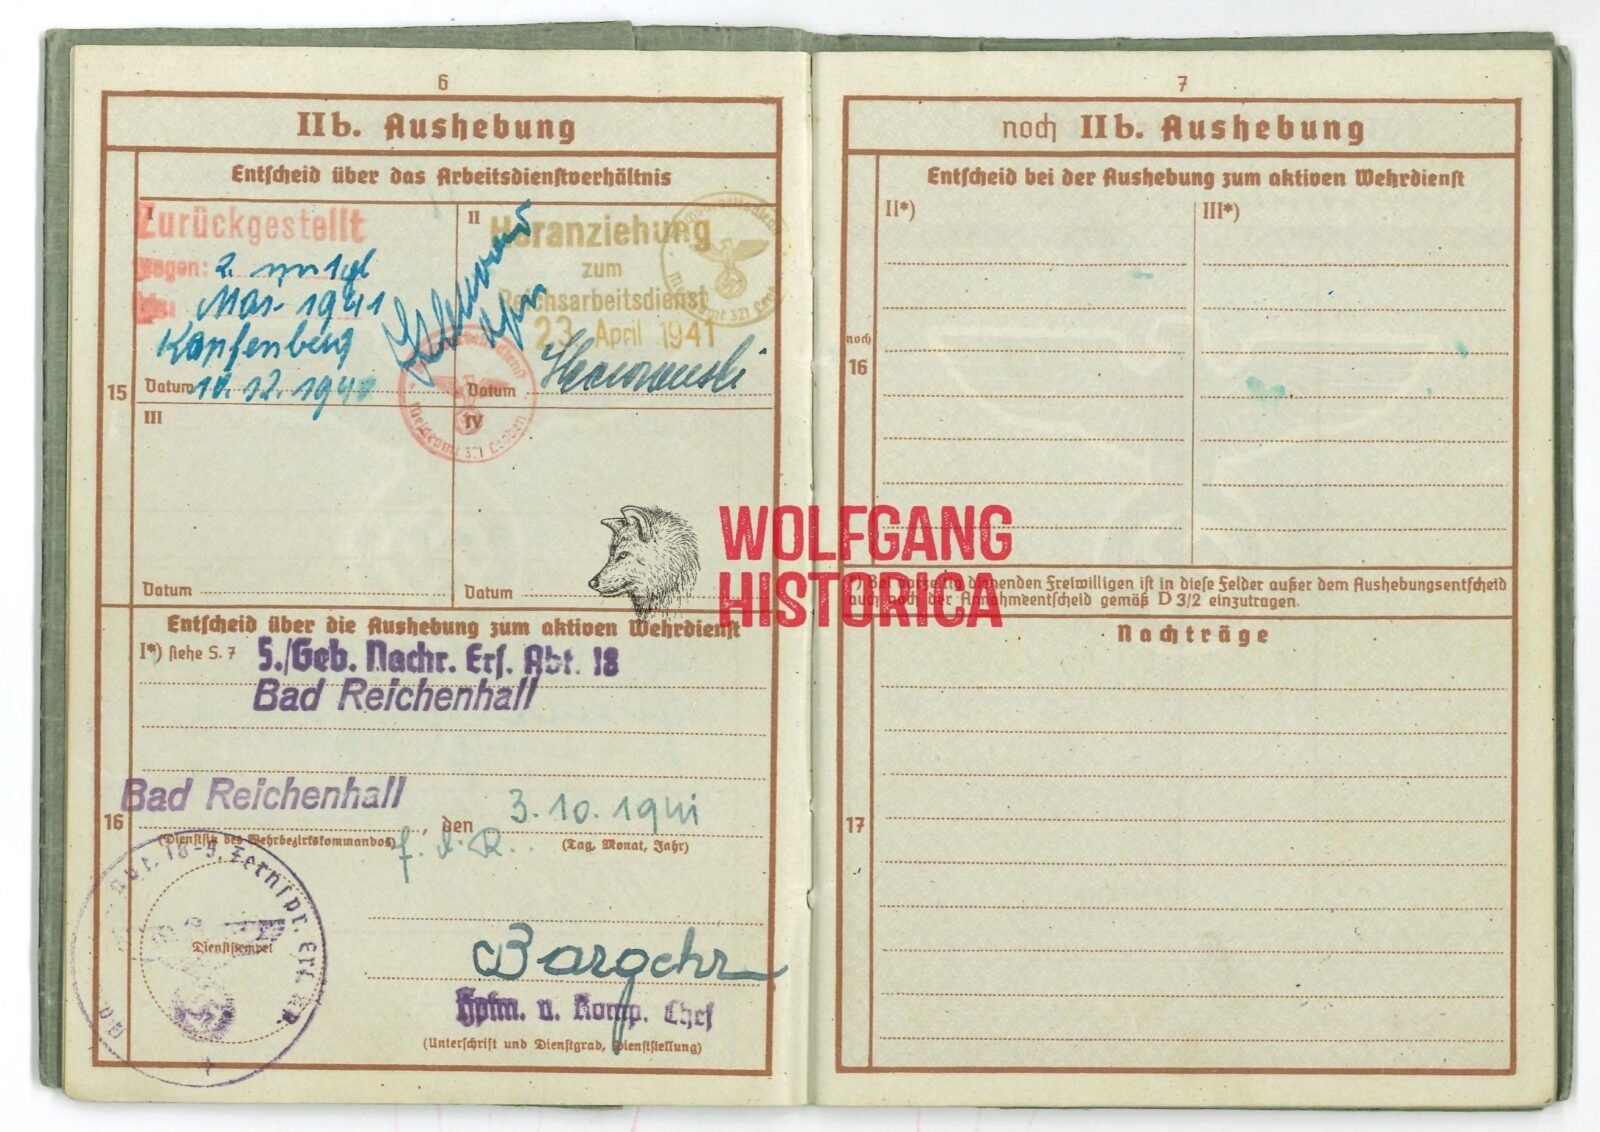 6
IIb. Aushebung
Entscheid über das Arbeitsdienstverhältnis
I
Zurückgestellt
wegen: 2.
bis: Mai 1941
Kapfenberg
Datum 10. 12. 1940
II
Heranziehung
zum
Reichsarbeitsdienst
23. April 1941
Datum
Meldeamt 321 Leoben
15
III
IV
Datum
Datum
Entscheid über die Aushebung zum aktiven Wehrdienst
I*) siehe S. 7
5./Geb. Nachr. Ers. Abt. 18
Bad Reichenhall
Bad Reichenhall
16
, den 3. 10. 1941
(Dienstsitz des Wehrbezirkskommandos)
(Tag, Monat, Jahr)
f. d. R.
Abt. 18-5. Fernspr. Ers.
Dienststempel
Bargehr
Hptm. u. Komp. Chef
(Unterschrift und Dienstgrad, Dienststellung)
7
noch IIb. Aushebung
Entscheid bei der Aushebung zum aktiven Wehrdienst
II*)
III*)
noch
16
*) Bei vorzeitig dienenden Freiwilligen ist in diese Felder außer dem Aushebungsentscheid
auch noch der Annahmeentscheid gemäß D 3/2 einzutragen.
Nachträge
17
WOLFGANG
HISTORICA